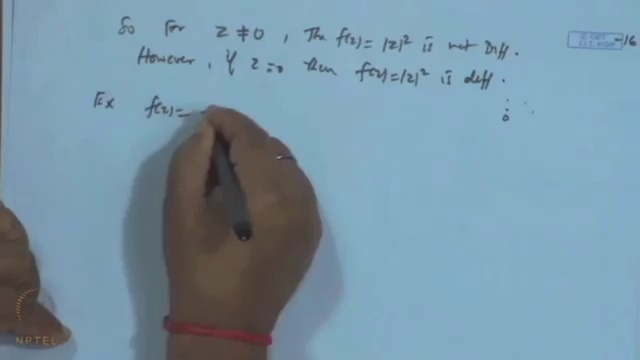 So For z ≠ 0, The f(z) = |z|² is not Diff.
However, if z = 0 then f(z) = |z|² is diff.
Ex f(z) =
0
16
NPTEL